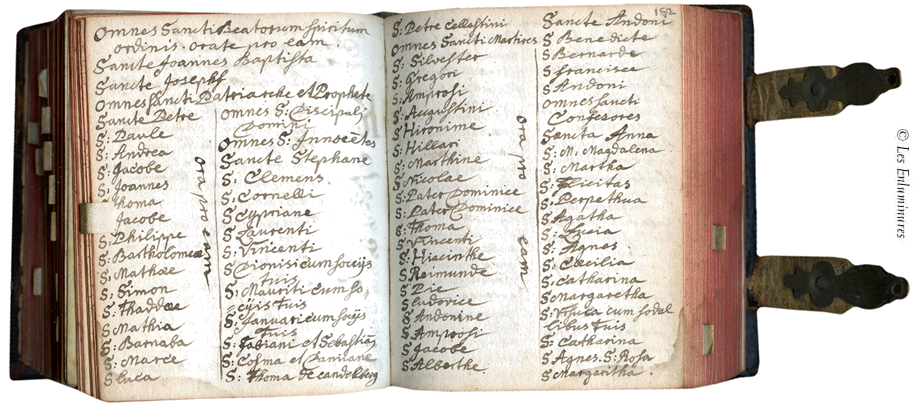 Omnes Sancti Beatorum spiritum
ordinis. orate pro eam.
Sancte Joannes Baptista
Sancte Joseph
Omnes Sancti Patriarche et Prophete
Sancte Petre
S: Paule
S: Andrea
S: Jacobe
S: Joannes
Thoma
Jacobe
S: Philippe
S: Bartholomee
S: Mathæe
S: Simon
S: Thaddæe
S Mathia
S: Barnaba
S: Marce
S Luca
ora pro eam
omnes S: Discipuli
Domini
Omnes S: Innocētes
Sancte Stephane
S: Clemens
S: Cornelli
S: Cypriane
S: Laurenti
S: Vincenti
S Dionisi cum socijs
tuis
S: Mauriti cum so,
cijs tuis
S: Januari cum socijs
tuis
S: Fabiani et Sebastiā
S: Cosma et Damiane
S: Thoma de candelberg
S: Petre Cellestini
Omnes Sancti Martires
S: Silvester
S: Gregori
S: Amprosi
S: Augustini
S: Hironime
S: Hillari
S: Marthine
S: Nicolae
S: Pater Dominice
S: Pater Dominice
S: Thoma
S: Vincenti
S: Hiacinthe
S: Reimunde
S: Pie
S: Ludovice
S: Andonine
S: Amprosi
S: Jacobe
S Alberthe.
ora pro eam
182
Sancte Andoni
S Benedicte
S Bernarde
S francisce
S Andoni
omnes Sancti
Confesores
Sancta Anna
S: M. Magdalena
S: Martha
S: Felicitas
S: Perpethua
S: Agatha
S: Lucia
S: Agnes
S: Cæcilia
S: Catharina
S Margaretha
S: Vrsula cum sodal
libus tuis
S: Catharina
S: Agnes. S: Rosa
S Margaritha.
© Les Enluminures